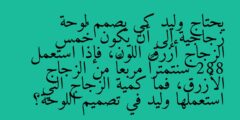 يحتاج وليد كي يصمم لوحة
زجاجية إلى أن يكون خمس
الزجاج أزرق اللون، فإذا استعمل
288 سنتمترًا مربعًا من الزجاج
الأزرق، فما كمية الزجاج التي
استعملها وليد في تصميم اللوحة؟